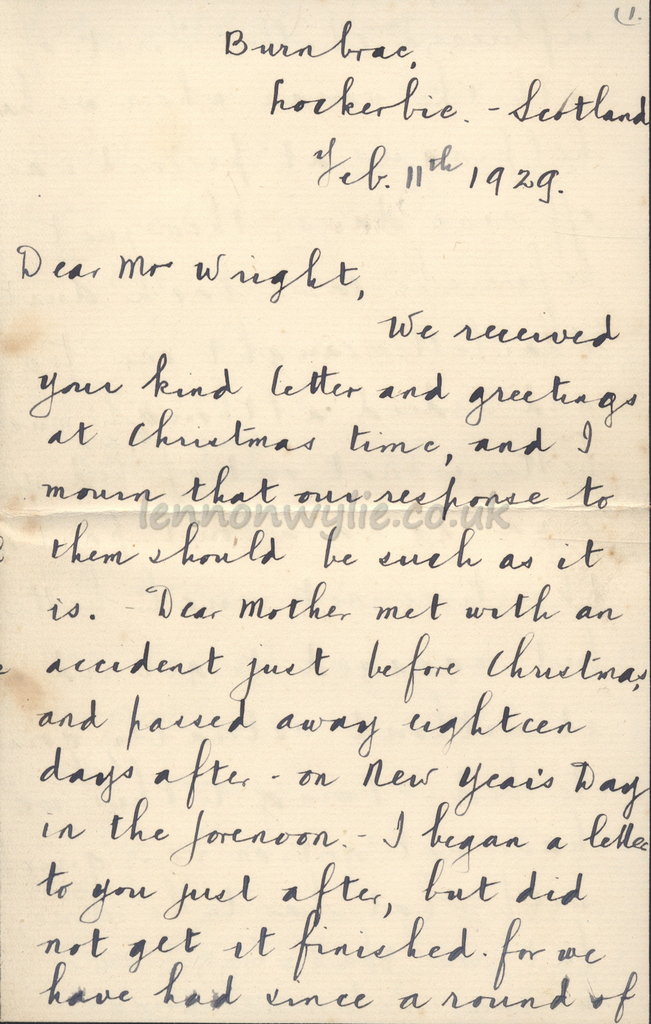 (1.
Burnbrae,
Lockerbie. - Scotland
Feb. 11th 1929.
Dear Mrs Wright,
We received
your kind letter and greetings
at Christmas time, and I
mourn that our response to
them should be such as it
is. - Dear Mother met with an
accident just before Christmas,
and passed away eighteen
days after - on New Year's Day
in the forenoon. - I began a letter
to you just after, but did
not get it finished. for we
have had since a round of
lennonwylie.co.uk